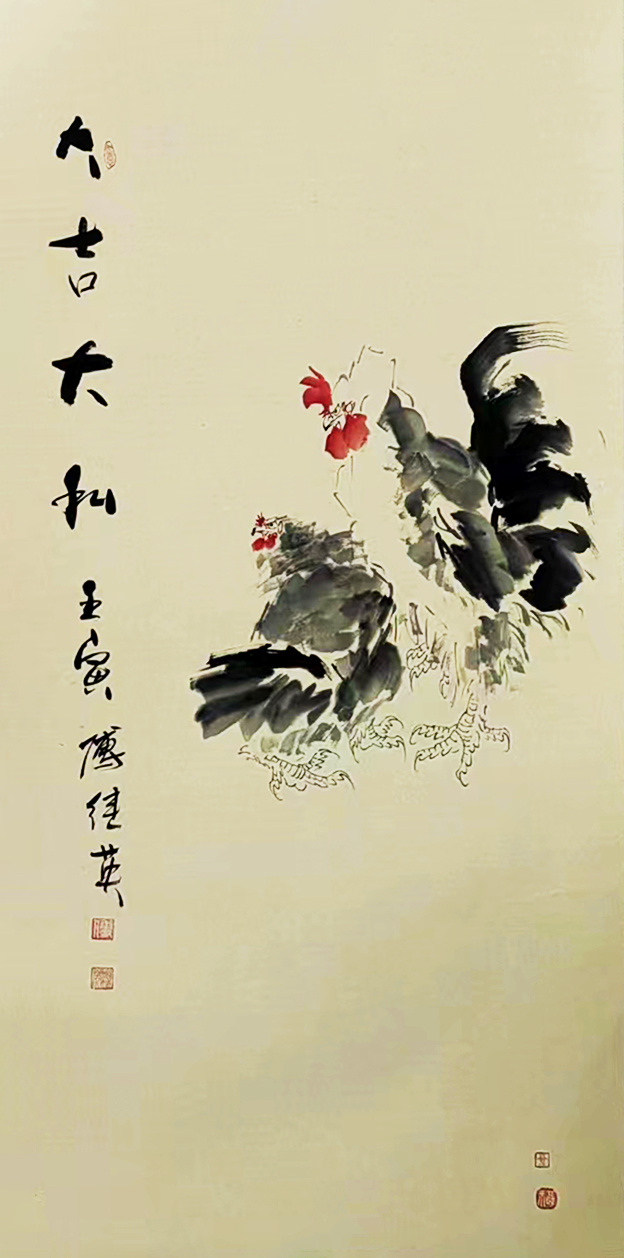 大吉大利 壬寅 傅 英